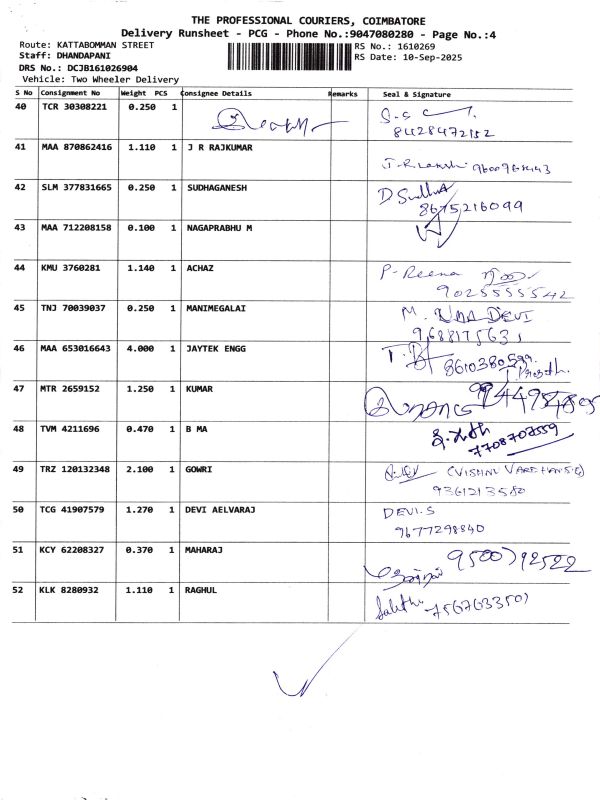 THE PROFESSIONAL COURIERS, COIMBATORE
Delivery Runsheet - PCG - Phone No.:9047080280 - Page No.:4
Route: KATTABOMMAN STREET RS No.: 1610269
Staff: DHANDAPANI RS Date: 10-Sep-2025
DRS No.: DCJB161026904
Vehicle: Two Wheeler Delivery
S No Consignment No Weight PCS Consignee Details Remarks Seal & Signature
40 TCR 30308221 0.250 1
8428472152
41 MAA 870862416 1.110 1 J R RAJKUMAR
42 SLM 377831665 0.250 1 SUDHAGANESH
8675216099
43 MAA 712208158 0.100 1 NAGAPRABHU M
44 KMU 3760281 1.140 1 ACHAZ P-Reena
9025555542
45 TNJ 70039037 0.250 1 MANIMEGALAI M. UMA DEVI
46 MAA 653016643 4.000 1 JAYTEK ENGG
8610380599
47 MTR 2659152 1.250 1 KUMAR
48 TVM 4211696 0.470 1 B MA
7708707559
49 TRZ 120132348 2.100 1 GOWRI
9361213580
50 TCG 41907579 1.270 1 DEVI AELVARAJ DEVI.S
9677298840
51 KCY 62208327 0.370 1 MAHARAJ
52 KLK 8280932 1.110 1 RAGHUL